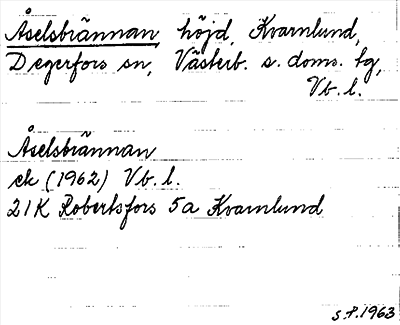 Åselsbrännan höjd, Kvarnlund,
Degerfors sn, Västerb. s. doms. tg,
Vb. l.
Åselsbrännan
ek (1962) Vb. l.
21K Robertsfors 5a Kvarnlund
S.P. 1963